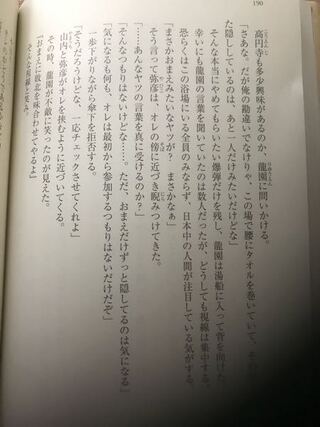 190
高円寺も多少興味があるのか、龍園に問いかける。
「さあな。だが俺の勘違いでなけりゃ、この場で腰にタオルを巻いていて、その
た隠しているのは、あと一人だけみたいだけどな」
そんな本当にやめてもらいたい爆弾だけを残し、龍園は湯船に入って背を向けた。
幸いにも龍園の言葉を聞いていたのは数人だったが、どうしても視線は集中する。
恐らくはこの浴場にいる全員のみならず、日本中の人間が注目している気がする。
「まさかおまえみたいなヤツが？　まさかなぁ」
そう言って弥彦は、オレの傍に近づき睨みつけてきた。
「……あんなヤツの言葉を真に受けるのか？」
「そんなつもりはないけどな……。ただ、おまえだけずっと隠してるのは気になる」
「気になるも何も、オレは最初から参加するつもりはないだけだぞ」
一歩下がりながら傘下を拒否する。
「そうだろうけどな、一応チェックさせてくれよ」
山内と弥彦がオレを挟むように近づいてくる。
その時、龍園が不敵に笑ったのが見えた。
『おまえに敗北を味合わせてやるよ』
そんな視線と笑み。